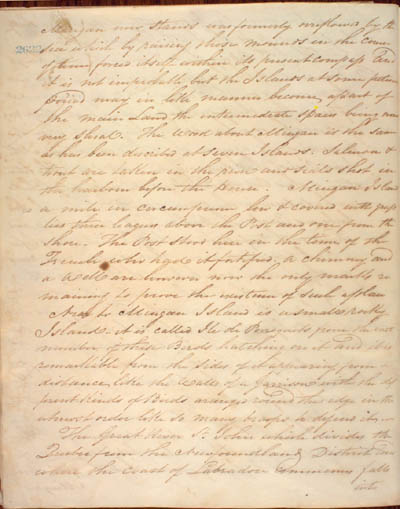 Mingan now stands was formerly overflowed by the
2632
sea which by raising those mounds in the course
of time forced itself within its present compass and
it is not improbable but the Islands at some future
period may in like manner become a part of
the main Land the intermediate spaces being now
very shoal. The Wood about Mingan is the same
as has been discribed at Seven Islands. Salmon &
trout are taken in the river and seals shot in
the harbour before the House. Mingan Island
is a mile in circumference high & covered with grass
lies three leagues above the Post and one from the
shore. The Post stood here in the time of the
French who had it fortified, a chimney and
a Well are however now the only marks re
maining to prove the existence of such a place
Near to Mingan Island is a small rocky
Island it is called Ile de Perroquets from the vast
number of those Birds hatching on it and is
remarkable from the sides of it appearing from a
distance like the Walls of a Garrison with the dif
ferent kinds of Birds arranged round the edge in the
utmost order like so many troops to defend it.
The Great River St. John which divides the
Quebec from the Newfoundland Districts and
where the coast of Labrador commences falls
into